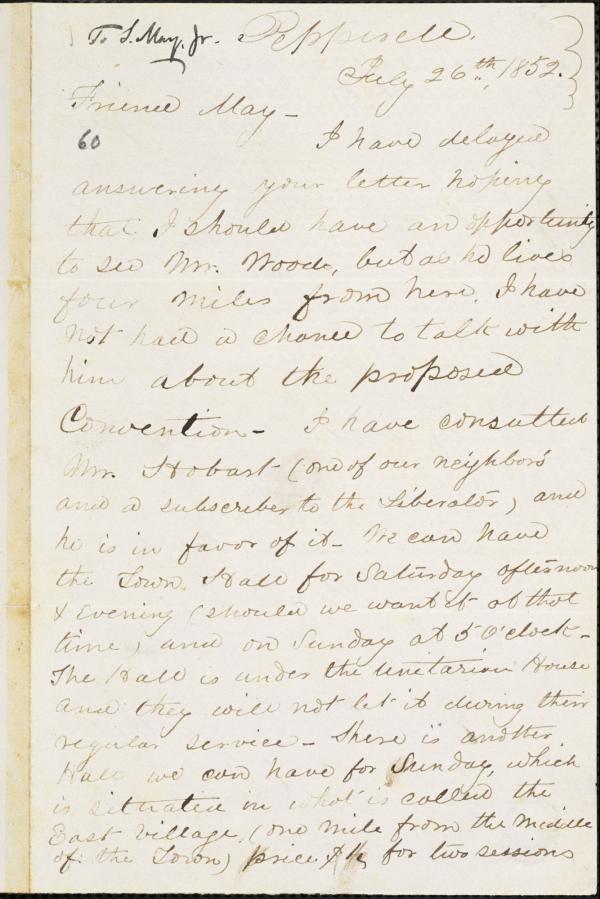 To S. May, Jr. Pepperell.
July 26th, 1852.
Friend May -
60
I have delayed
answering your letter hoping
that I should have an opportunity
to see Mr. Woods, but as he lives
four miles from here, I have
not had a chance to talk with
him about the proposed
Convention - I have consulted
Mr. Hobart (one of our neighbors
and a subscriber to the Liberator) and
he is in favor of it - We can have
the Town Hall for Saturday afternoon
& Evening (should we want it at that
time) and on Sunday at 5 O'clock -
The Hall is under the Unitarian House
and they will not let it during their
regular service - There is another
Hall we can have for Sunday, which
is situated in what is called the
East Village, (one mile from the Middle
of the Town) price for two sessions